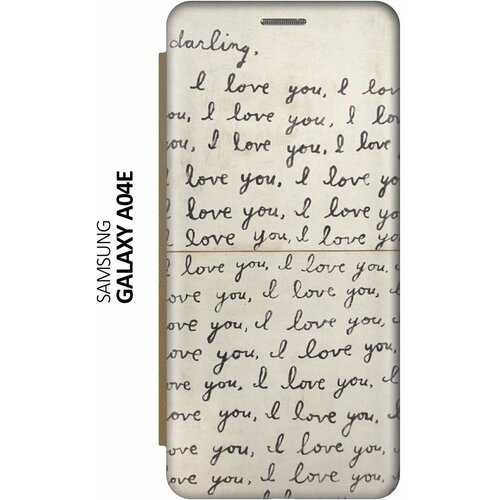 SAMSUNG
GALAXY A04E
darling,
I love you, I lov
ou, I love you, I lo
ou, I love you, I love
love you, I love yo
love you, I love yo
I love you, I love yo
I love you, I love you,
ove you, I love you,
ove you, I love you,
ove you, I love you,
ove you, I love you,
love you, I love you,
ove you, I love you,
ove you, I love you